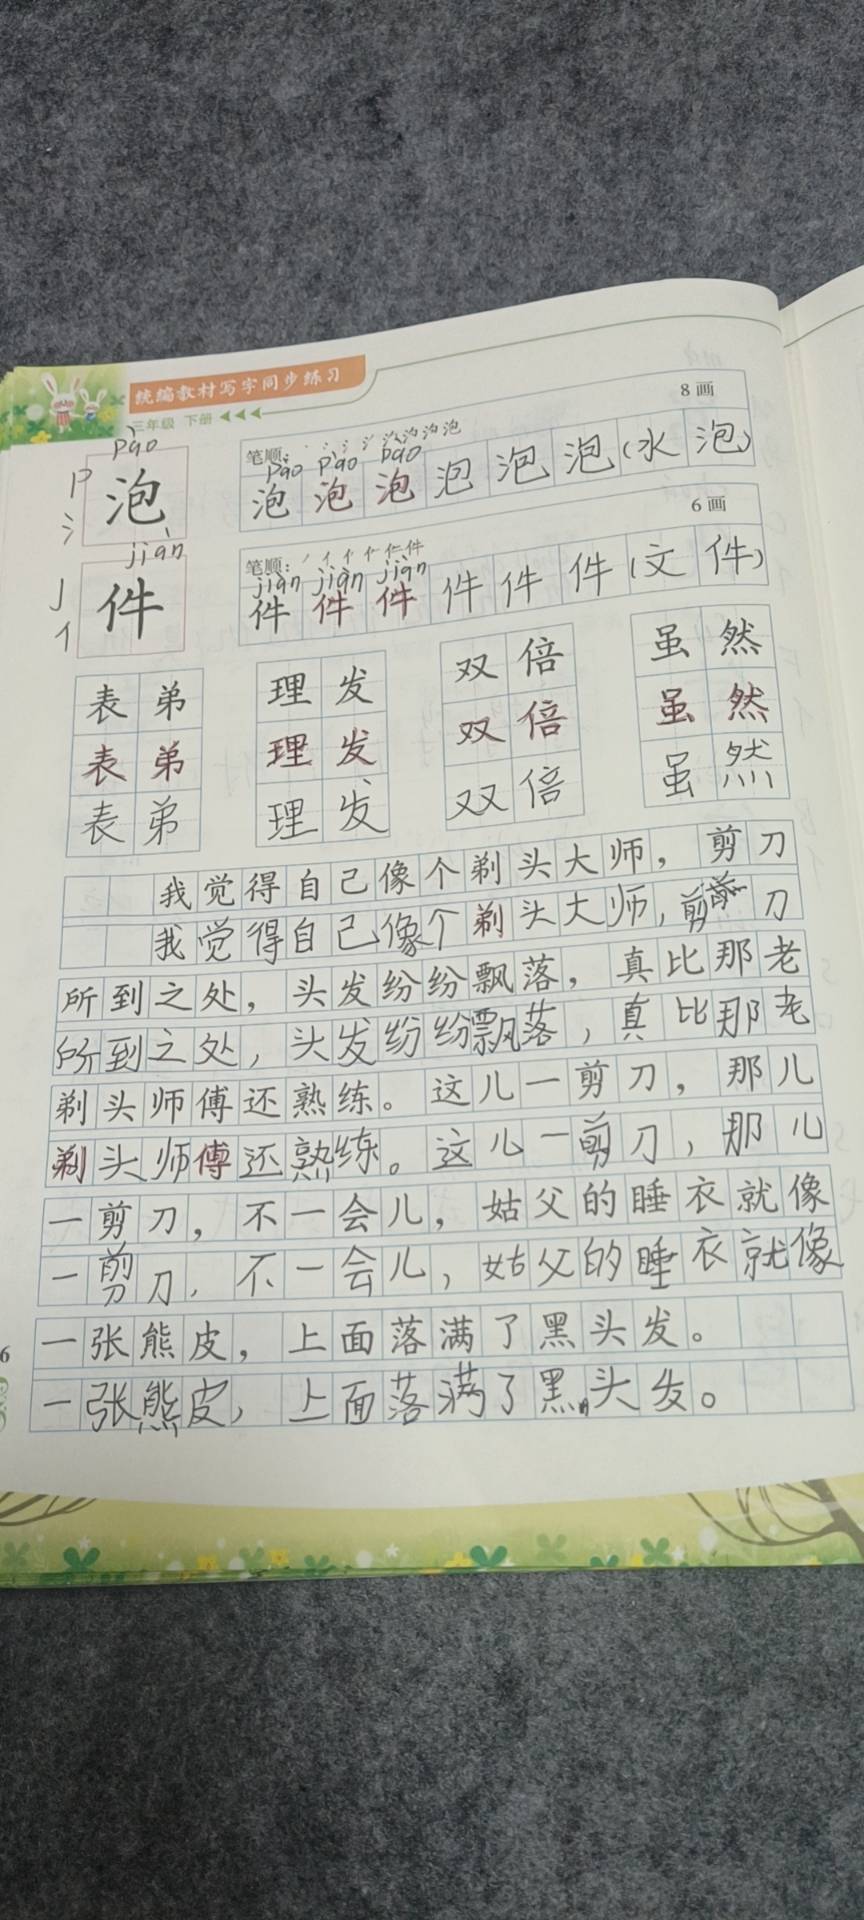 统编教材写字同步练习
三年级 下册
8画
pào
P 氵 泡
笔顺：
pào pào pào
泡 泡 泡 泡 泡 泡 (水 泡)
6画
jiàn
J 亻 件
笔顺：
jiàn jiàn jiàn
件 件 件 件 件 件 (文 件)
表弟 理发 双倍 虽然
表弟 理发 双倍 虽然
表弟 理发 双倍 虽然
我觉得自己像个剃头大师，剪刀
我觉得自己像个剃头大师，剪刀
所到之处，头发纷纷飘落，真比那老
所到之处，头发纷纷飘落，真比那老
剃头师傅还熟练。这儿一剪刀，那儿
剃头师傅还熟练。这儿一剪刀，那儿
一剪刀，不一会儿，姑父的睡衣就像
一剪刀，不一会儿，姑父的睡衣就像
一张熊皮，上面落满了黑头发。
6
一张熊皮，上面落满了黑头发。